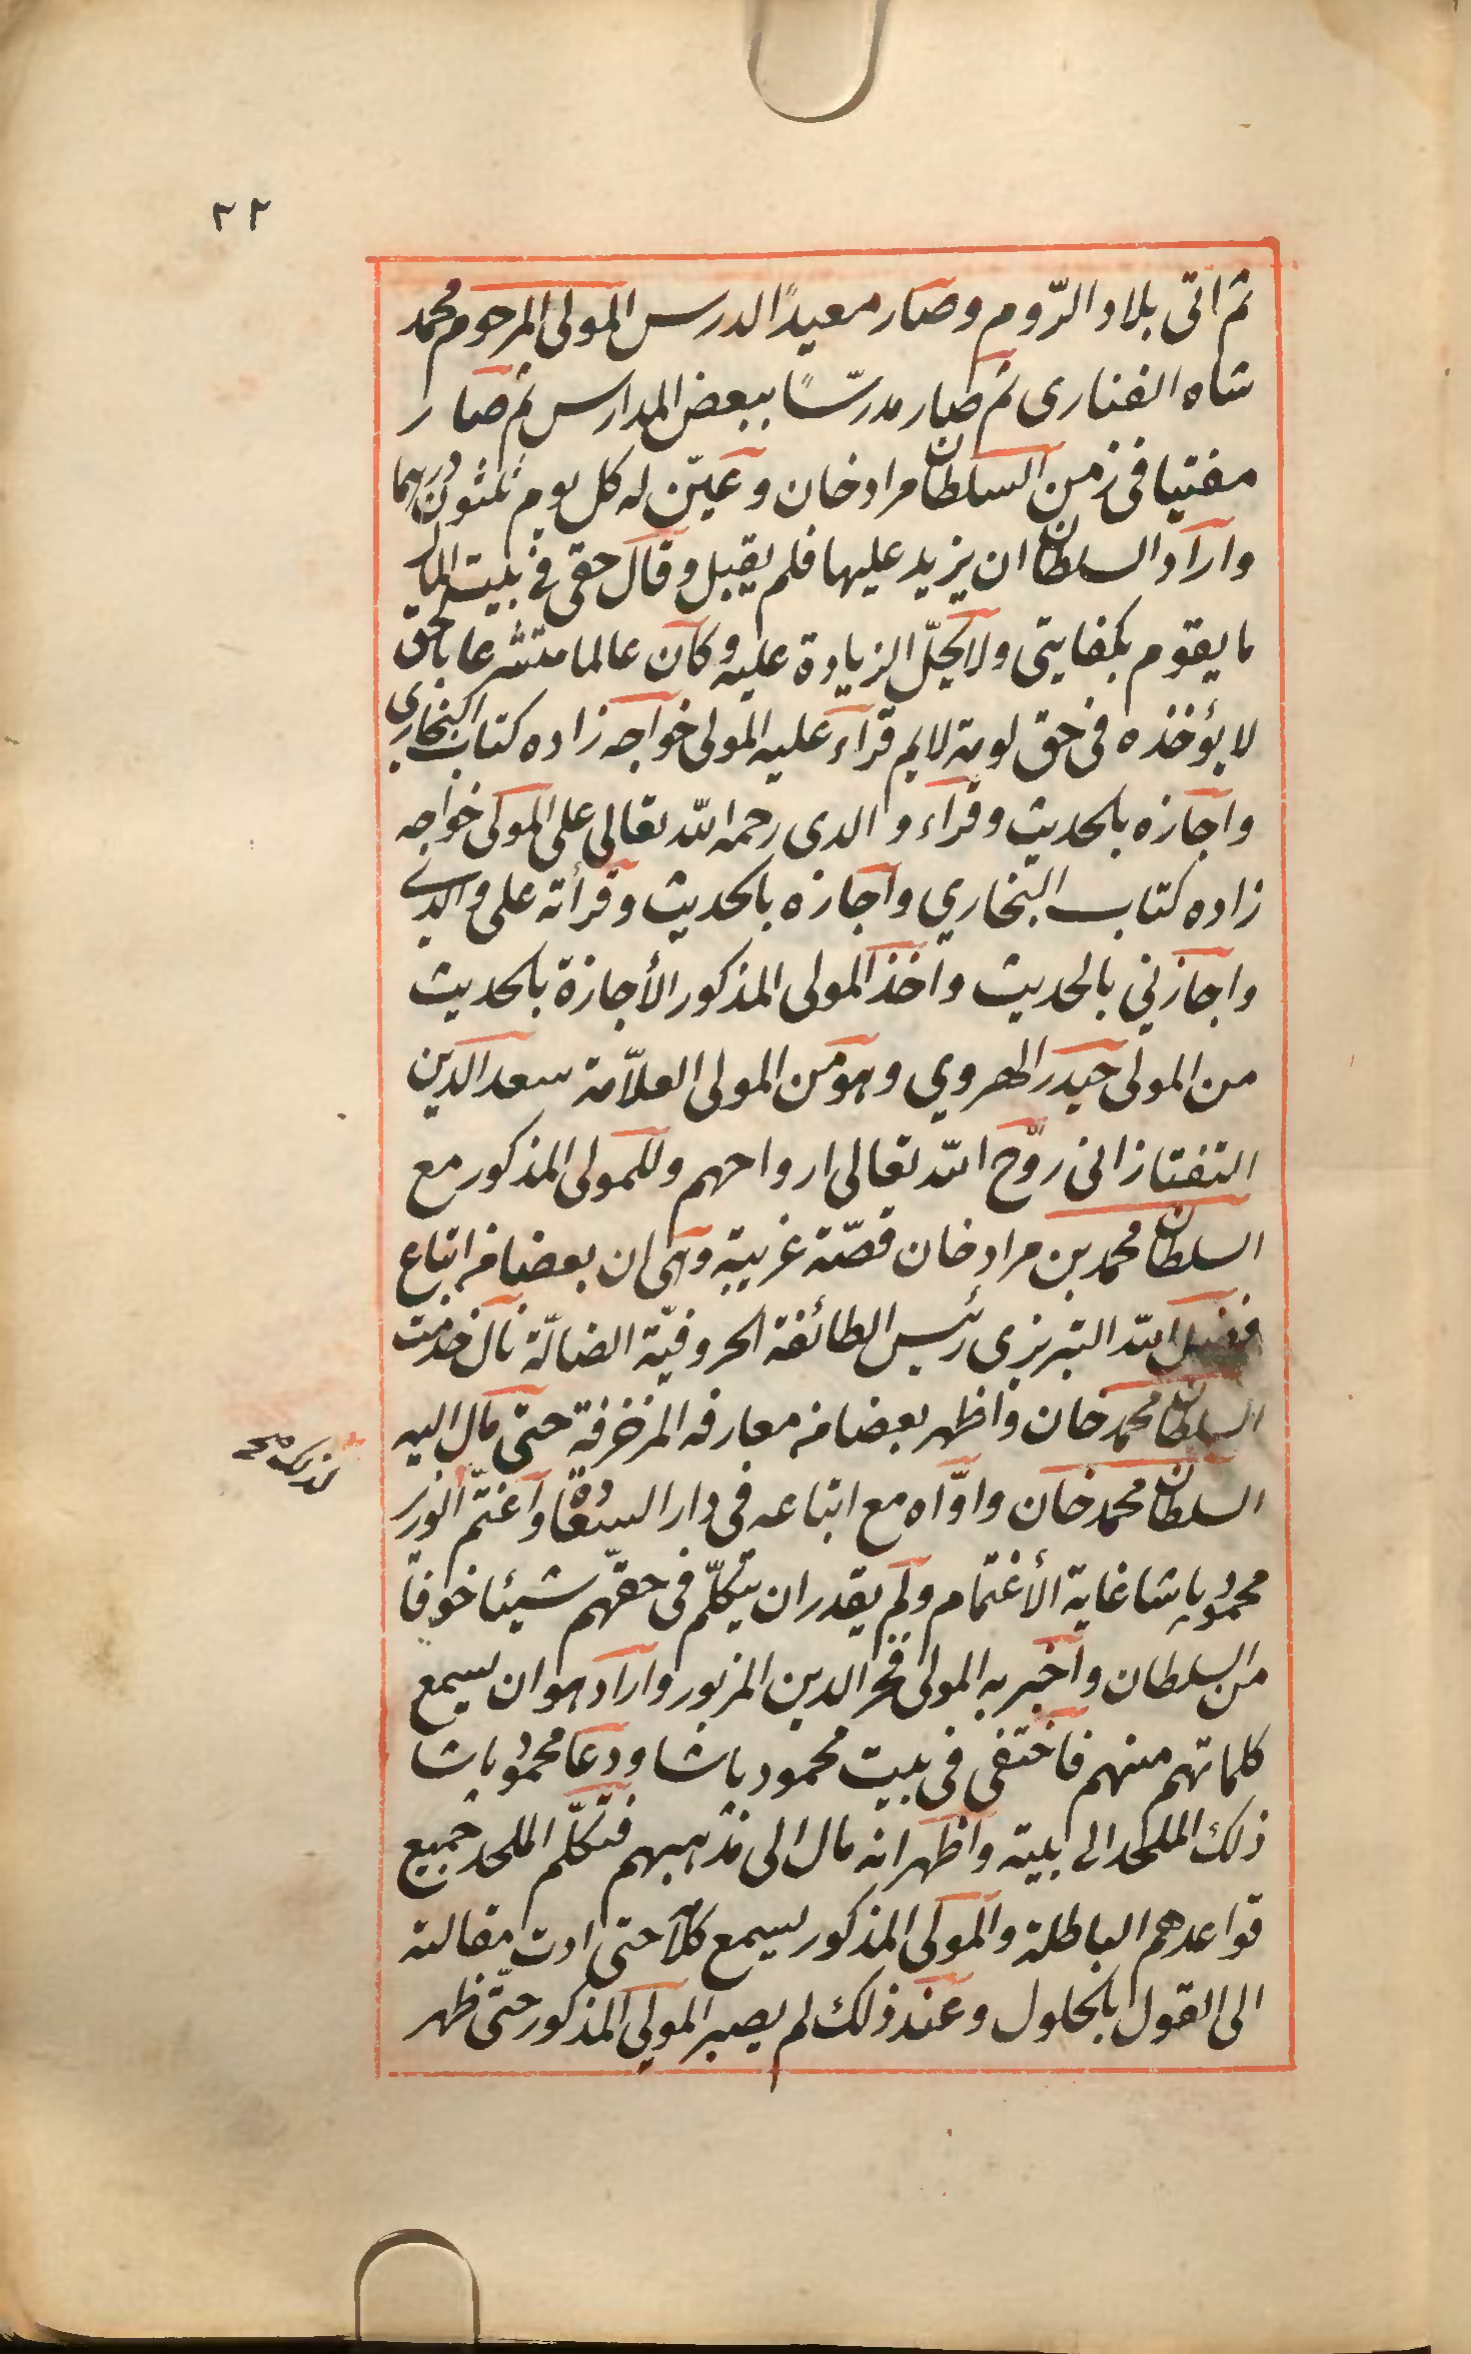 ٢٢
ثم اتى بلاد الرّوم وصار معيدًا لدرس المولى المرحوم محمد
شاه الفنارى ثم صار مدرّسًا ببعض المدارس ثم صار
مفتيا فى زمن السلطان مراد خان وعيّن له كل يوم ثلثون درهما
واراد السلطان ان يزيد عليها فلم يقبل وقال حقى فى بيت المال
ما يقوم بكفايتى ولا يحلّ الزيادة عليه وكان عالما متشرعا بالحق
لا يؤخذه فى حق لومة لايم قرأء عليه المولى خواجه زاده كتاب البخارى
واجازه بالحديث وقراء والدى رحمه الله تعالى على المولى خواجه
زاده كتاب البخاري واجازه بالحديث وقرأته على والدى
واجازني بالحديث واخذ المولى المذكور الأجازة بالحديث
من المولى حيدر الهروي وهو من المولى العلاّمة سعد الدين
التفتازانى روّح الله تعالى ارواحهم وللمولى المذكور مع
السلطان محمد بن مراد خان قصّة غريبة وهى ان بعضا من اتباع
فضل الله التبريزى رئيس الطائفة الحروفيّة الضالّة نال خدمت
السلطان محمد خان واظهر بعضا من معارفه المزخرفة حتى مال اليه
السلطان محمد خان واوّاه مع اتباعه فى دار السعادة واغتمّ الوزير
لذلك صح
محمود پاشا غاية الأغتمام ولم يقدر ان يتكلّم فى حقّهم شيئا خوفا
من السلطان واخبر به المولى فخر الدين المزبور واراد هو ان يسمع
كلماتهم منهم فاختفى فى بيت محمود باشا ودعا محمود باشا
ذلك الملحد الى بيته واظهر انه مال الى مذهبهم فتكلّم الملحد جميع
قواعدهم الباطلة والمولى المذكور يسمع كلامه حتى ادت مقالته
الى القول بالحلول وعند ذلك لم يصبر المولى المذكور حتّى ظهر